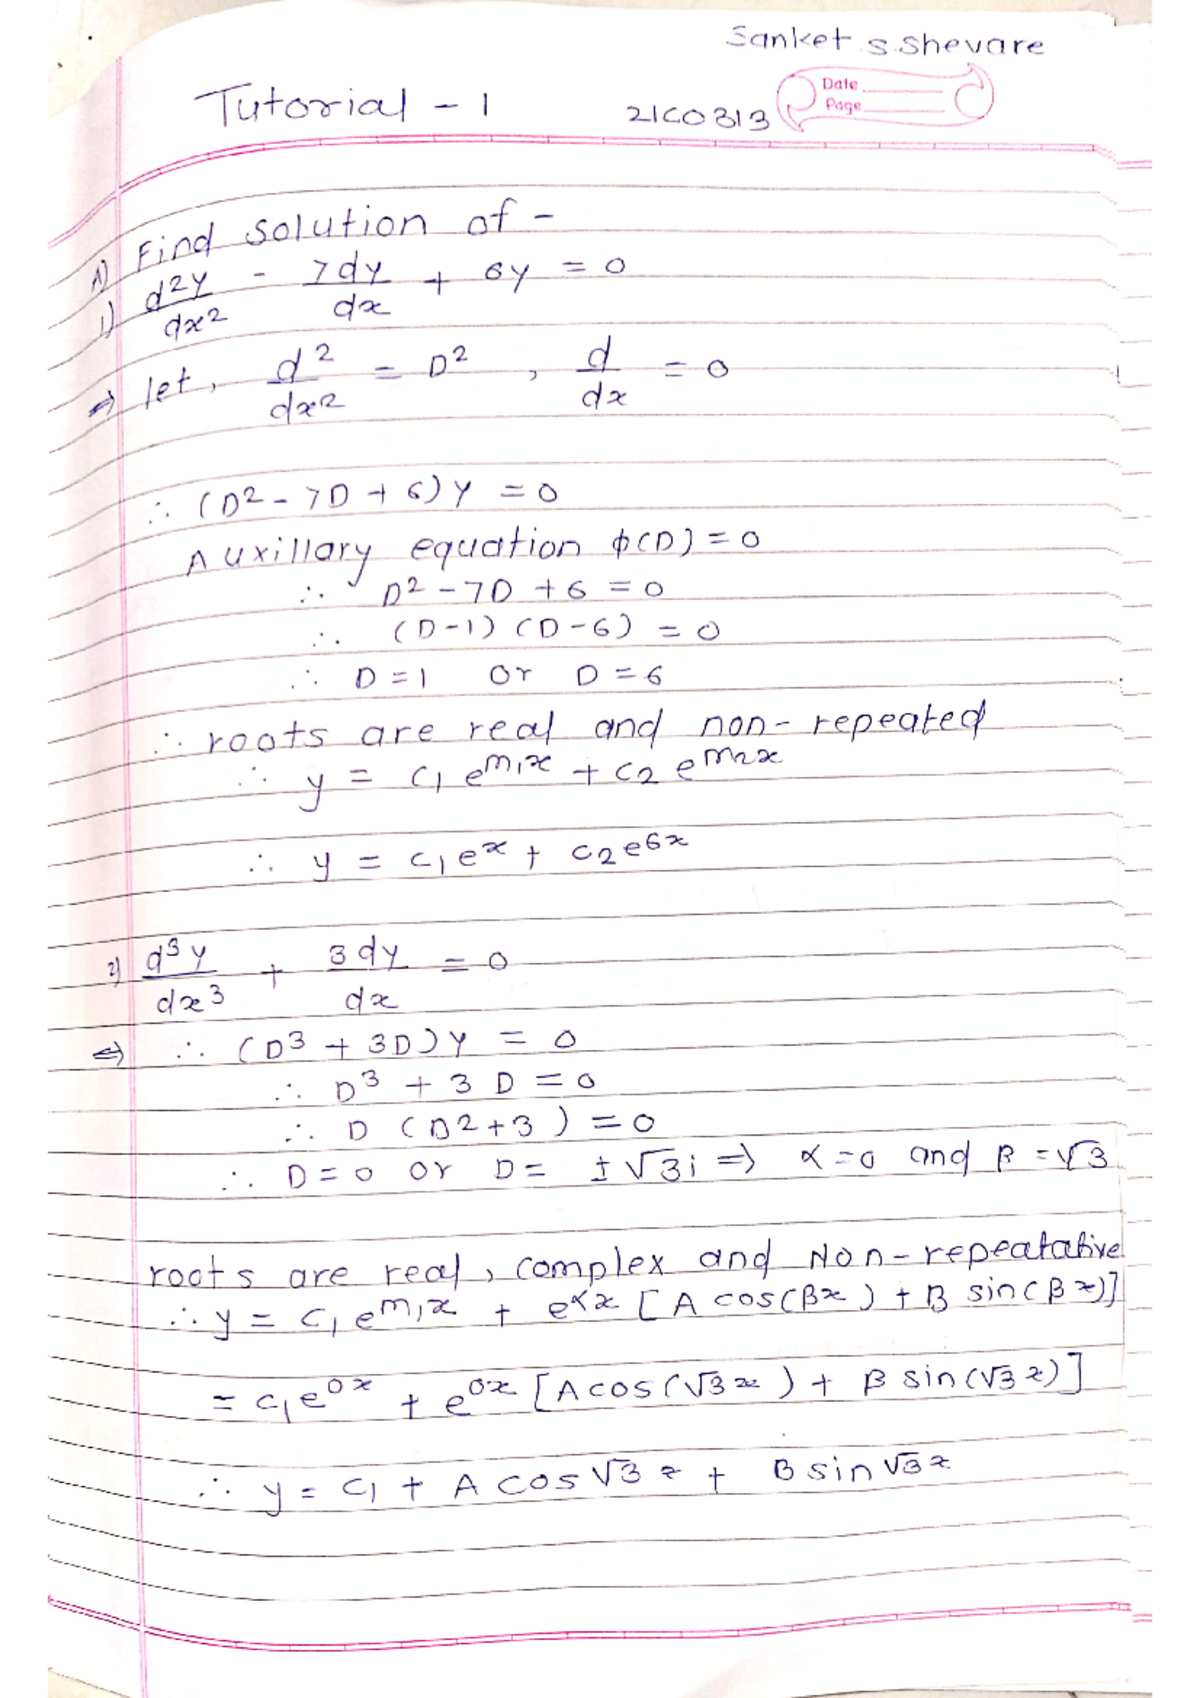 Sanket S. Shevare
Date
Tutorial - 1 21CO313 Page
A) Find solution of -
1) d²y/dx² - 7dy/dx + 6y = 0
⇒ let, d²/dx² = D² , d/dx = 0
∴ (D² - 7D + 6) y = 0
Auxillary equation ϕ(D) = 0
∴ D² - 7D + 6 = 0
∴ (D-1) (D-6) = 0
∴ D = 1 or D = 6
∴ roots are real and non-repeated
∴ y = c₁ e^m₁x + c₂ e^m₂x
∴ y = c₁e^x + c₂e^6x
2) d³y/dx³ + 3dy/dx = 0
⇒ ∴ (D³ + 3D) y = 0
∴ D³ + 3D = 0
∴ D (D²+3) = 0
∴ D = 0 or D = ±√3i ⇒ α = 0 and β = √3
roots are real, complex and Non-repeatative
∴ y = c₁ e^m₁x + e^αx [A cos(βx) + B sin(βx)]
= c₁e^0x + e^0x [A cos(√3x) + B sin(√3x)]
∴ y = c₁ + A cos √3x + B sin √3x